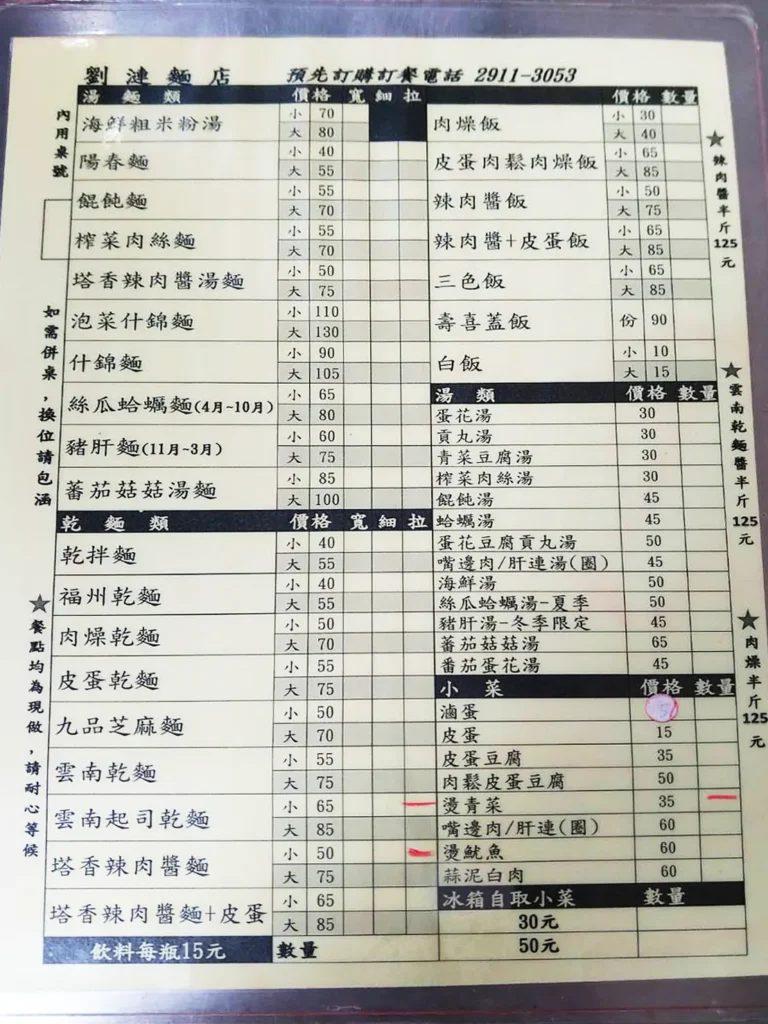 劉漣麵店 預先訂購訂餐電話 2911-3053
內用桌號
如需併桌，換位請包涵
★餐點均為現做，請耐心等候
湯麵類 價格 寬 細 拉
海鮮粗米粉湯 小 70 大 80
陽春麵 小 40 大 55
餛飩麵 小 55 大 70
榨菜肉絲麵 小 55 大 70
塔香辣肉醬湯麵 小 50 大 75
泡菜什錦麵 小 110 大 130
什錦麵 小 90 大 105
絲瓜蛤蠣麵(4月~10月) 小 65 大 80
豬肝麵(11月~3月) 小 60 大 75
蕃茄菇菇湯麵 小 85 大 100
乾麵類 價格 寬 細 拉
乾拌麵 小 40 大 55
福州乾麵 小 40 大 55
肉燥乾麵 小 50 大 70
皮蛋乾麵 小 55 大 75
九品芝麻麵 小 50 大 70
雲南乾麵 小 55 大 75
雲南起司乾麵 小 65 大 85
塔香辣肉醬麵 小 50 大 75
塔香辣肉醬麵+皮蛋 小 65 大 85
飲料每瓶15元 數量
價格 數量
肉燥飯 小 30 大 40
皮蛋肉鬆肉燥飯 小 65 大 85
辣肉醬飯 小 50 大 75
辣肉醬+皮蛋飯 小 65 大 85
三色飯 小 65 大 85
壽喜蓋飯 份 90
白飯 小 10 大 15
湯類 價格 數量
蛋花湯 30
貢丸湯 30
青菜豆腐湯 30
榨菜肉絲湯 30
餛飩湯 45
蛤蠣湯 45
蛋花豆腐貢丸湯 50
嘴邊肉/肝連湯(圈) 45
海鮮湯 50
絲瓜蛤蠣湯-夏季 50
豬肝湯-冬季限定 45
蕃茄菇菇湯 65
蕃茄蛋花湯 45
小菜 價格 數量
滷蛋
皮蛋 15
皮蛋豆腐 35
肉鬆皮蛋豆腐 50
燙青菜 35
嘴邊肉/肝連(圈) 60
燙魷魚 60
蒜泥白肉 60
冰箱自取小菜 數量
30元
50元
★辣肉醬半斤125元
★雲南乾麵醬半斤125元
★肉燥半斤125元